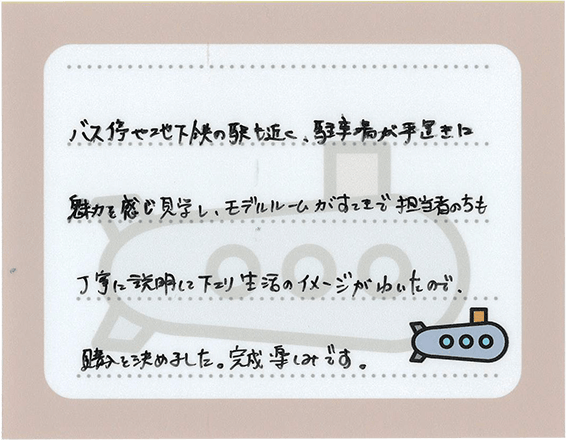 バス停や地下鉄の駅も近く、駐車場が平置きに
魅力を感じ見学し、モデルルームがすてきで担当者の方も
丁寧に説明して下さり生活のイメージがわいたので、
購入を決めました。完成楽しみです。